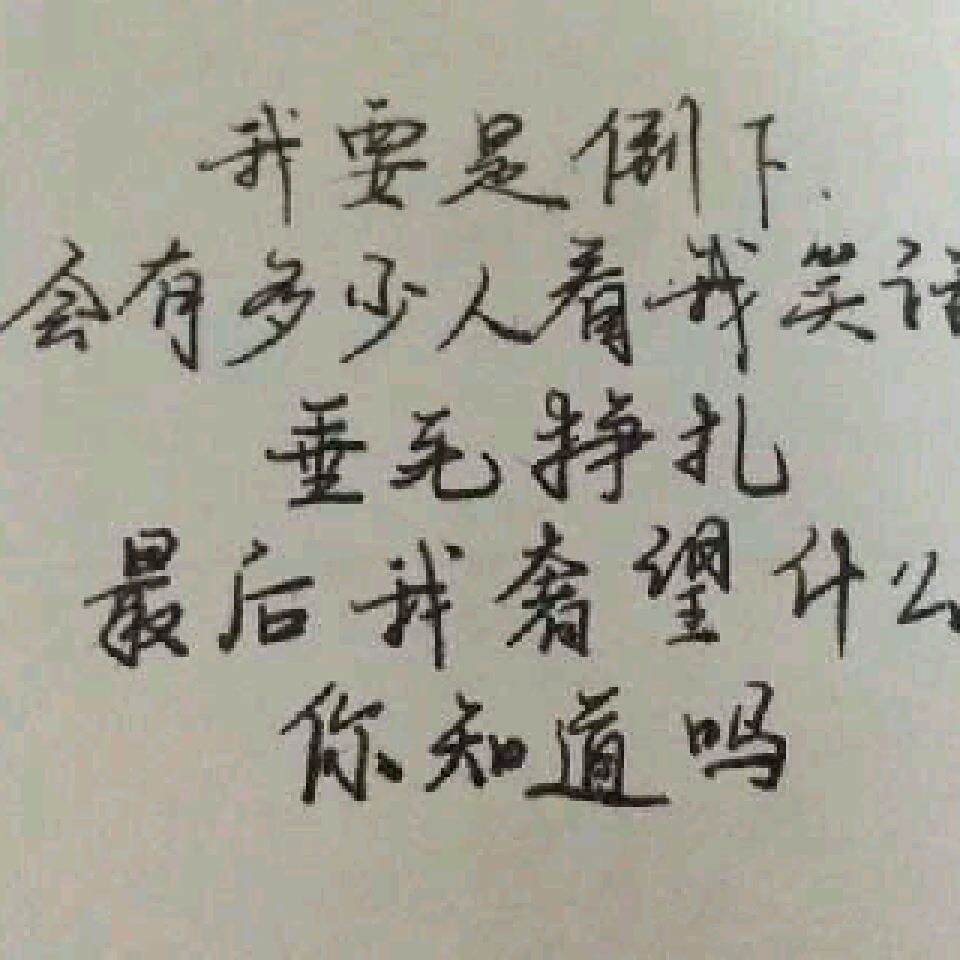 我要是倒下.
会有多少人看我笑话
垂死挣扎
最后我奢望什么
你知道吗